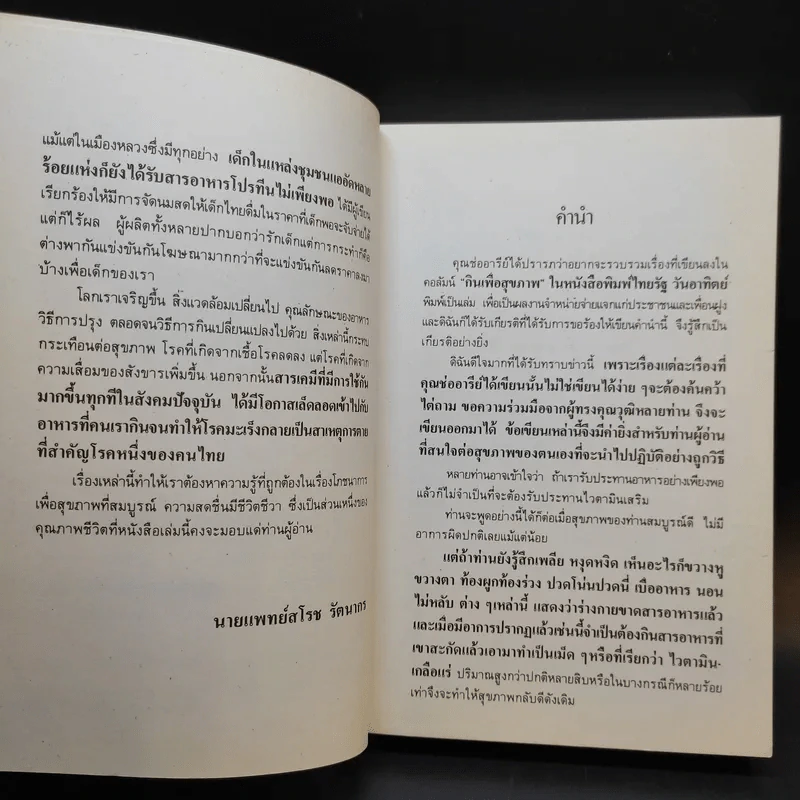 แม้แต่ในเมืองหลวงซึ่งมีทุกอย่าง เด็กในแหล่งชุมชนแออัดหลาย
ร้อยแห่งก็ยังได้รับสารอาหารโปรทีนไม่เพียงพอ ได้มีผู้เขียน
เรียกร้องให้มีการจัดนมสดให้เด็กไทยดื่มในราคาที่เด็กพอจะจับจ่ายได้
แต่ก็ไร้ผล ผู้ผลิตทั้งหลายปากบอกว่ารักเด็กแต่การกระทำก็คือ
ต่างพากันแข่งขันกันโฆษณามากกว่าที่จะแข่งขันกันลดราคาลงมา
บ้างเพื่อเด็กของเรา
โลกเราเจริญขึ้น สิ่งแวดล้อมเปลี่ยนไป คุณลักษณะของอาหาร
วิธีการปรุง ตลอดจนวิธีการกินเปลี่ยนแปลงไปด้วย สิ่งเหล่านี้กระทบ
กระเทือนต่อสุขภาพ โรคที่เกิดจากเชื้อโรคลดลง แต่โรคที่เกิดจาก
ความเสื่อมของสังขารเพิ่มขึ้น นอกจากนั้นสารเคมีที่มีการใช้กัน
มากขึ้นทุกทีในสังคมปัจจุบัน ได้มีโอกาสเล็ดลอดเข้าไปกับ
อาหารที่คนเรากินจนทำให้โรคมะเร็งกลายเป็นสาเหตุการตาย
ที่สำคัญโรคหนึ่งของคนไทย
เรื่องเหล่านี้ทำให้เราต้องหาความรู้ที่ถูกต้องในเรื่องโภชนาการ
เพื่อสุขภาพที่สมบูรณ์ ความสดชื่นมีชีวิตชีวา ซึ่งเป็นส่วนหนึ่งของ
คุณภาพชีวิตที่หนังสือเล่มนี้คงจะมอบแด่ท่านผู้อ่าน
นายแพทย์สโรช รัตนากร
คำนำ
คุณช่ออารีย์ได้ปรารภว่าอยากจะรวบรวมเรื่องที่เขียนลงใน
คอลัมน์ "กินเพื่อสุขภาพ" ในหนังสือพิมพ์ไทยรัฐ วันอาทิตย์
พิมพ์เป็นเล่ม เพื่อเป็นผลงานจำหน่ายจ่ายแจกแก่ประชาชนและเพื่อนฝูง
และดิฉันก็ได้รับเกียรติที่ได้รับการขอร้องให้เขียนคำนำนี้ จึงรู้สึกเป็น
เกียรติอย่างยิ่ง
ดิฉันดีใจมากที่ได้รับทราบข่าวนี้ เพราะเรื่องแต่ละเรื่องที่
คุณช่ออารีย์ได้เขียนนั้นไม่ใช่เขียนได้ง่าย ๆจะต้องค้นคว้า
ไต่ถาม ขอความร่วมมือจากผู้ทรงคุณวุฒิหลายท่าน จึงจะ
เขียนออกมาได้ ข้อเขียนเหล่านี้จึงมีค่ายิ่งสำหรับท่านผู้อ่าน
ที่สนใจต่อสุขภาพของตนเองที่จะนำไปปฏิบัติอย่างถูกวิธี
หลายท่านอาจเข้าใจว่า ถ้าเรารับประทานอาหารอย่างเพียงพอ
แล้วก็ไม่จำเป็นที่จะต้องรับประทานไวตามินเสริม
ท่านจะพูดอย่างนี้ได้ก็ต่อเมื่อสุขภาพของท่านสมบูรณ์ดี ไม่มี
อาการผิดปกติเลยแม้แต่น้อย
แต่ถ้าท่านยังรู้สึกเพลีย หงุดหงิด เห็นอะไรก็ขวางหู
ขวางตา ท้องผูกท้องร่วง ปวดโน่นปวดนี่ เบื่ออาหาร นอน
ไม่หลับ ต่าง ๆเหล่านี้ แสดงว่าร่างกายขาดสารอาหารแล้ว
และเมื่อมีอาการปรากฏแล้วเช่นนี้จำเป็นต้องกินสารอาหารที่
เขาสะกัดแล้วเอามาทำเป็นเม็ด ๆหรือที่เรียกว่า ไวตามิน-
เกลือแร่ ปริมาณสูงกว่าปกติหลายสิบหรือในบางกรณีก็หลายร้อย
เท่าจึงจะทำให้สุขภาพกลับดีดังเดิม